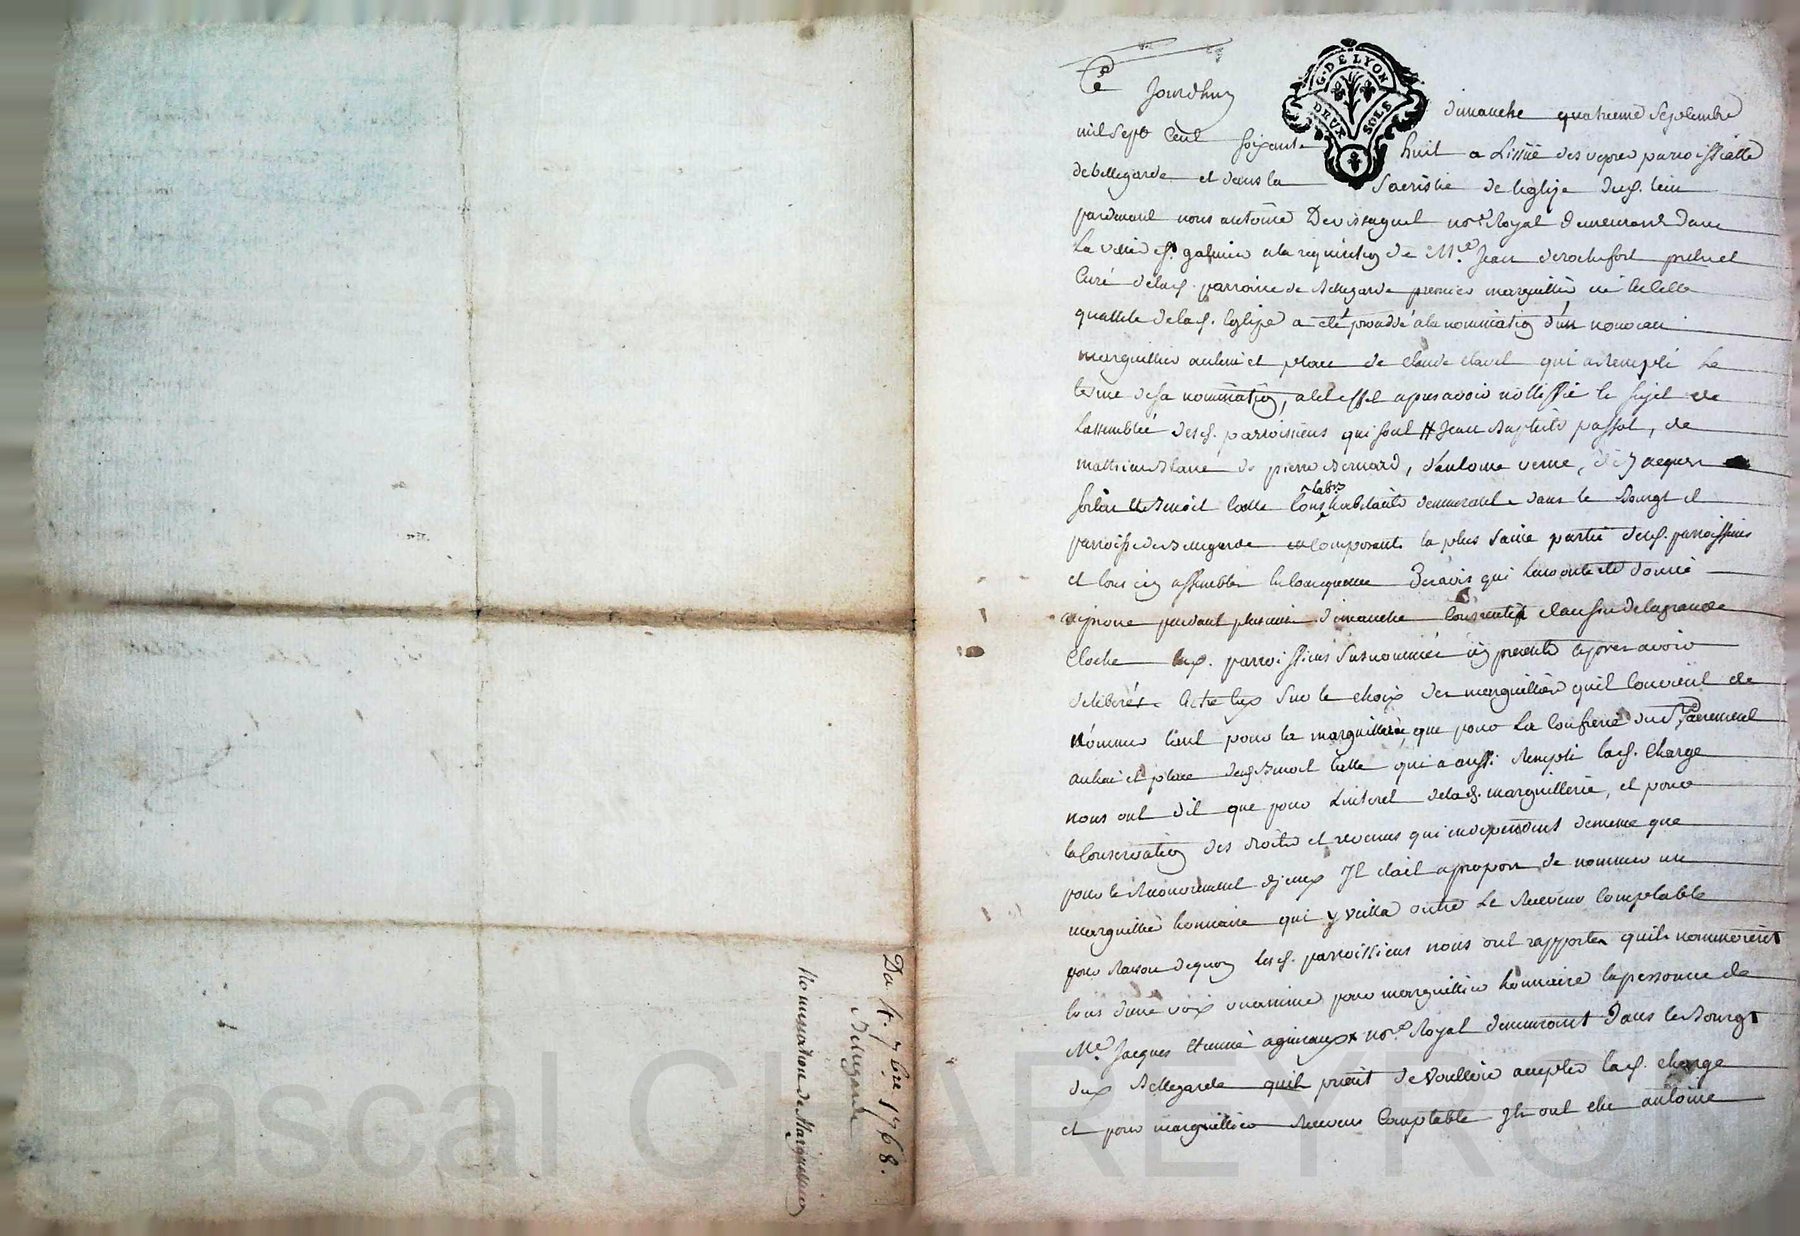 G. DE LYON
DEUX SOLS
Ce Jourdhuy dimanche quatrieme Septembre
mil Sept Cent soixante huit a Lissüe des vepres parroissialle
de bellegarde et dans la Sacristie de leglise dud. lieu
pardevant nous antoine Devissaguet nore. Royal demeurant dans
La ville st. galmier a la requisition de Mre. Jean derochefort pretre et
Curé delad. parroisse de Bellegarde premier marguillier
quallité delad. Eglise a eté procedé a la nommination d'un nouveau
marguillier au lieu et place de Claude Clavel qui a rempli Le
terme de sa nommination, a cet effet apres avoir nottiffié le sujet de
Lassemblée desd. parroissiens qui sont Jean Baptiste passot, de
mathieu Blanc de pierre Bernard, d'antoine verne, de Jacques
et Benoit Colle tous labrs habitants demeurant dans le Bourg et
parroisse de Bellegarde Composant la plus saine partie desd. parroissiens
et tous icy assemblés en consequence de lavis qui Leur a eté donné
au prone pendant plusieurs dimanche et au son de la grande
Cloche Lesd. parroissiens susnommés icy presents apres avoir
deliberés entre eux sur le choix des marguilliers quil convient de
nommer tant pour la marguillerie, que pour La Confrerie du St. Sacrement
au lieu et place dud. Benoit Colle qui a aussi rempli lad. Charge
nous ont dit que pour Linteret delad. marguillerie, et pour
la Conservation des droits et revenus qui en dependent de meme que
pour le Recouvrement diceux Il etait apropos de nommer un
marguillier honnaire qui y veilla outre Le Receveur Comptable
pour Raison dequoy lesd. parroissiens nous ont rapporter quils nommerent
tous dune voix unanime pour marguillier honnaire la personne de
Me. Jacques Etienne agniraux nore. Royal demeurant Dans le Bourg
dud. Bellegarde quil prient de Voulloir accepter lad. charge
et pour marguillier Receveur Comptable Ils ont elu antoine
Du 4. 7bre 1768.
Bellegarde
Nommination de Marguillier
Pascal CHAREYRON